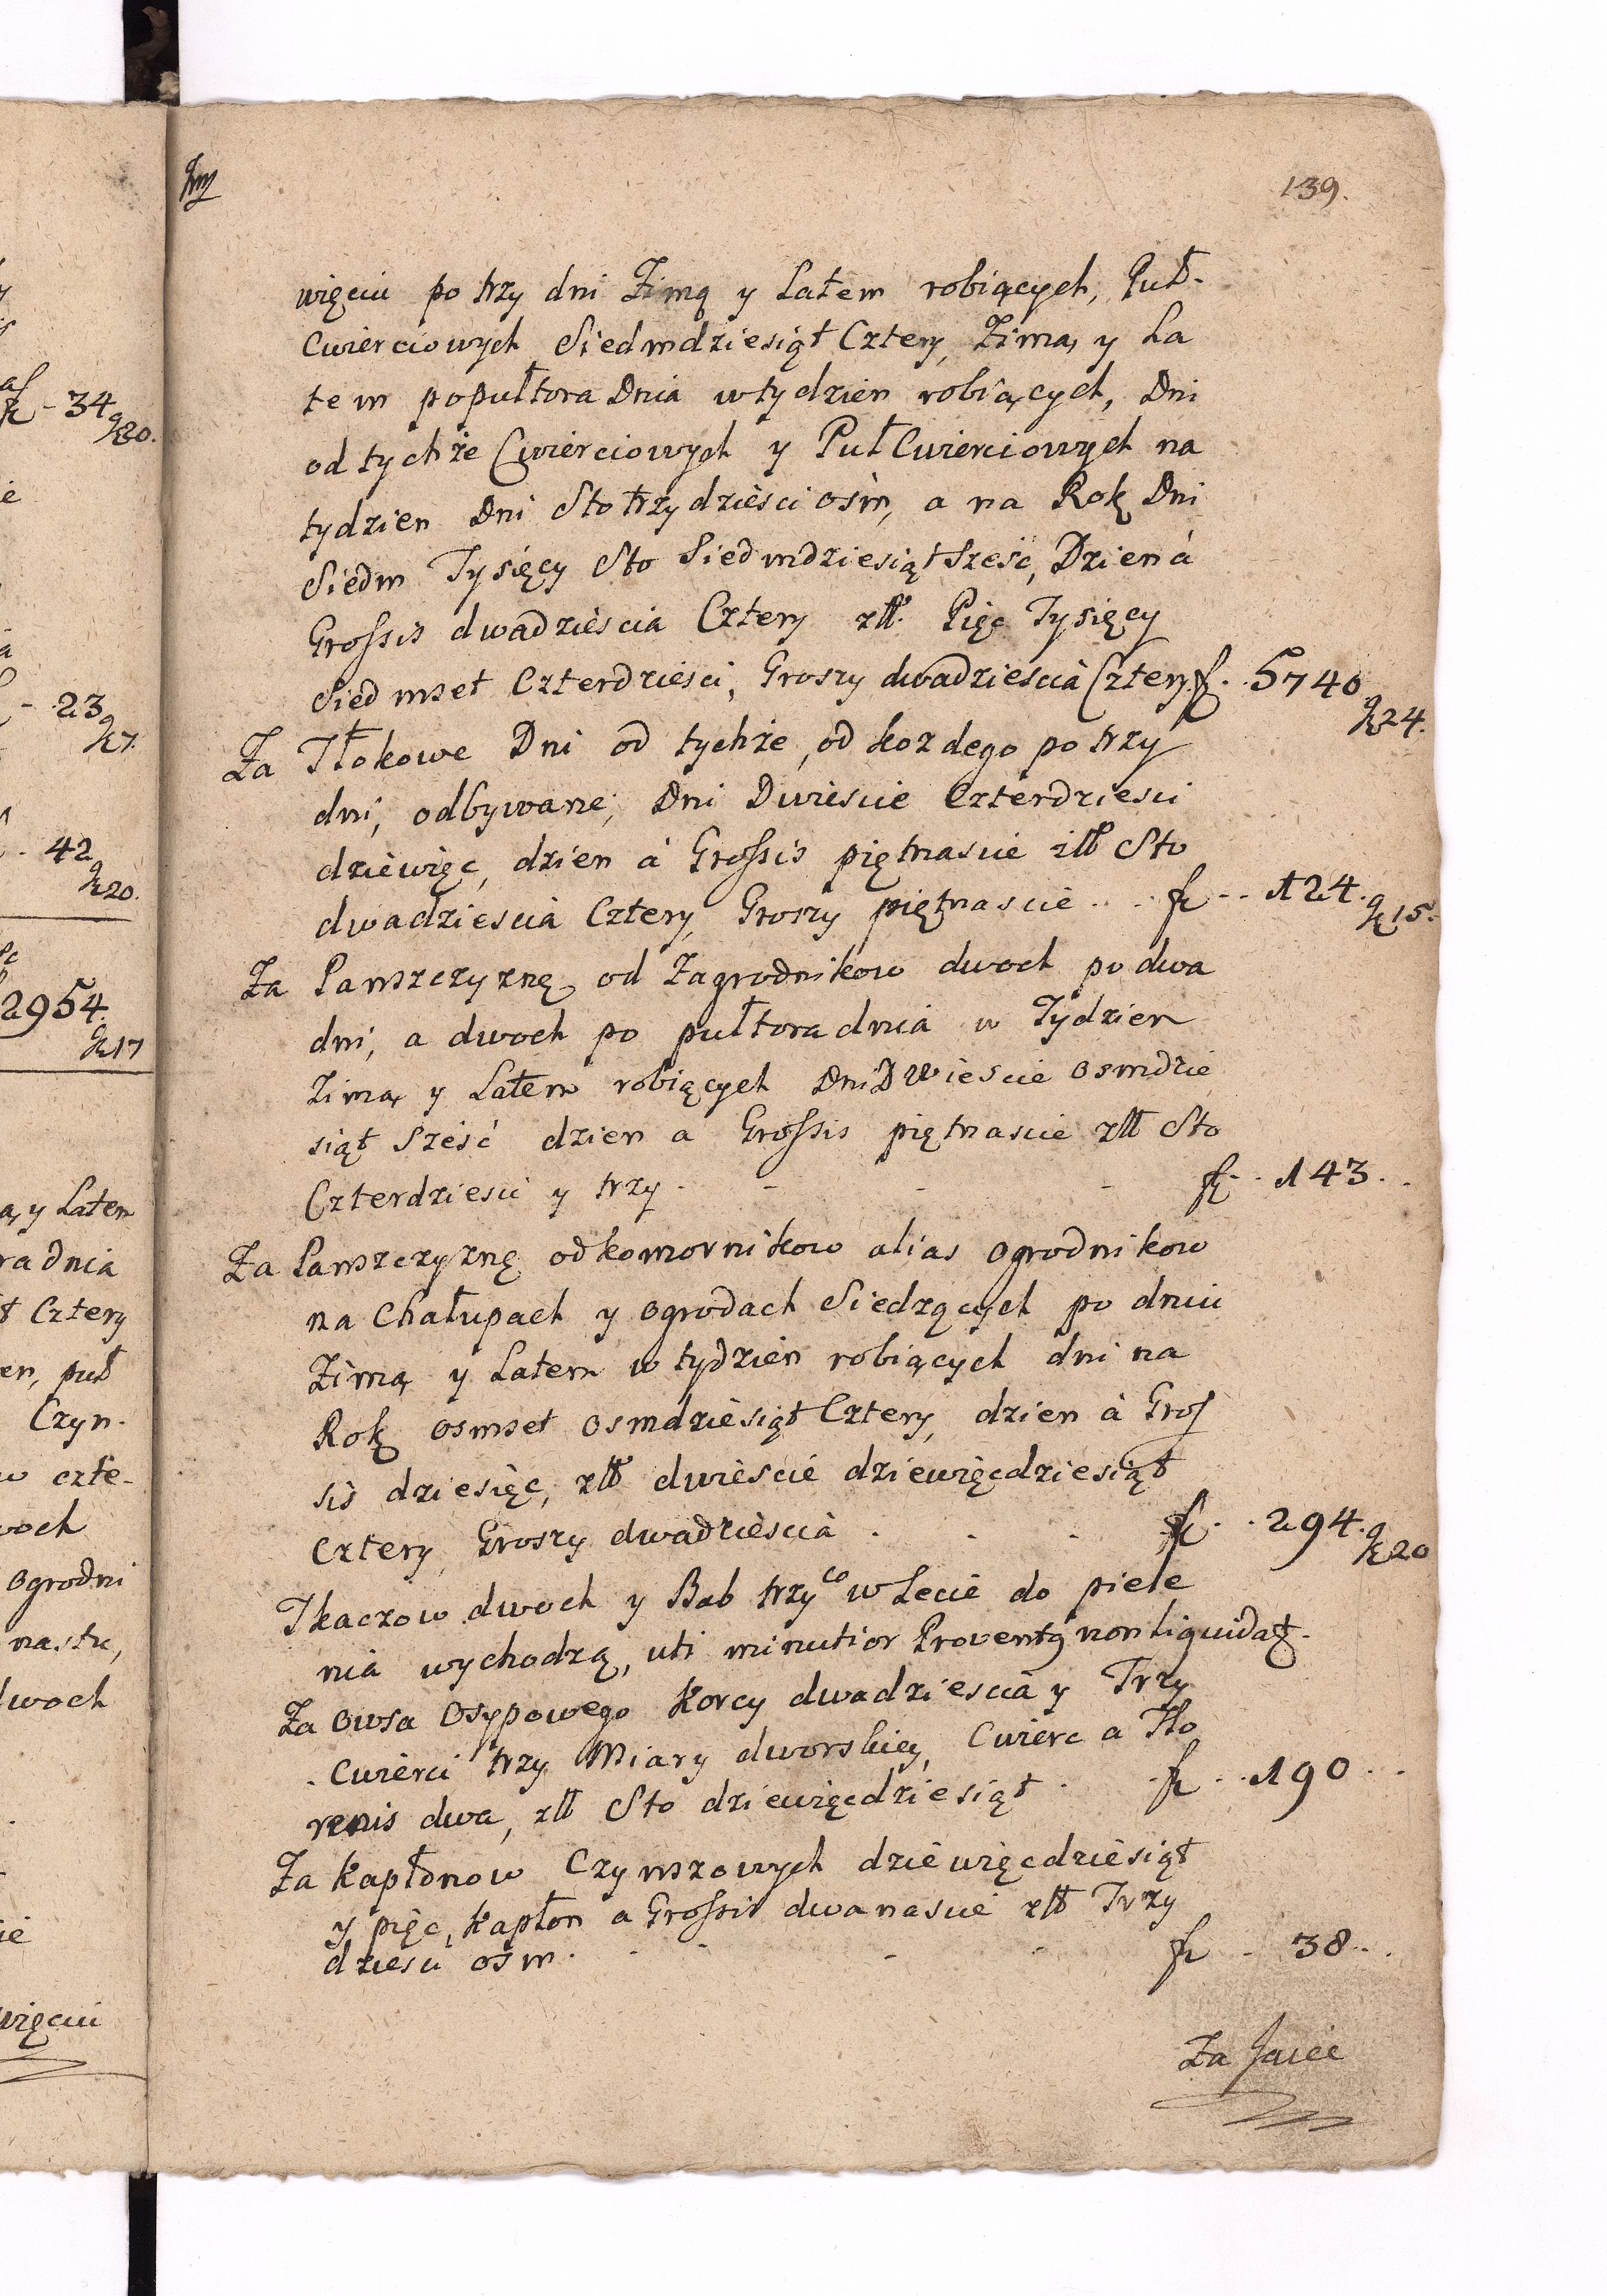 139.
więciu po trzy dni Zimą y Latem robiących, Puł-
Cwierciowych Siedmdziesiąt Cztery, Zimą y La
tem popułtora Dnia w tydzien robiących, Dni
od tychże Cwierciowych y PułCwierciowych na
tydzien Dni Sto trzydzieści ośm, a na Rok Dni
Siedm Tysięcy Sto Siedmdziesiąt Sześć, Dzien á
Grossis dwadzieścia Cztery złł. Pięc Tysięcy
Siedmset Czterdziesci, Groszy dwadziescia Cztery. f. 5740
g 24.
Za Tłokowe Dni od tychże, od kozdego po trzy
dni, odbywane, Dni Dwiescie Czterdziesci
dziewięc, dzien á Grossis piętnascie złł Sto
dwadziescia Cztery, Groszy piętnascie . . . f . . 124. g 15.
Za Panszczyznę od Zagrodnikow dwoch po dwa
dni, a dwoch po pułtora dnia w Tydzien
Zimą y Latem robiących Dni Dwiescie osmdzie
siąt Sześć dzien a Grossis piętnascie złł Sto
Czterdziesci y trzy. - - - f. . 143. .
Za Panszczyznę od komornikow alias ogrodnikow
na Chałupach y ogrodach Siedzących po dniu
Zimą y Latem w tydzien robiących dni na
Rok osmset osmdziesiąt Cztery, dzien á Gros
sis dziesięc, złł dwieście dziewięcdziesiąt
Cztery, Groszy dwadzieścia . . . f. . 294. g 20
Tkaczow dwoch y Bab trzy co w Lecie do piele
nia wychodzą, uti minutior Proventg non liquidat.
Za owsa Osypowego Korcy dwadziescia y Trzy
. Cwierci trzy Miary dworskiey, Cwierc a Flo
renis dwa, złł Sto dziewięcdziesiąt . . f . . 190 . .
Za Kapłonow Czynszowych dziewięcdziesiąt
y pięc, Kapłon a Grossis dwanascie złł Trzy
dziesci ośm . - - - - f - 38 . .
Za Jaiec
34
g 20.
23
g 7.
42
g 20.
2954.
g 17
a, y Latem
ra dnia
t Cztery
en, puł
Czyn-
w czte-
woch
ogrodni
nastu,
dwoch
więciu